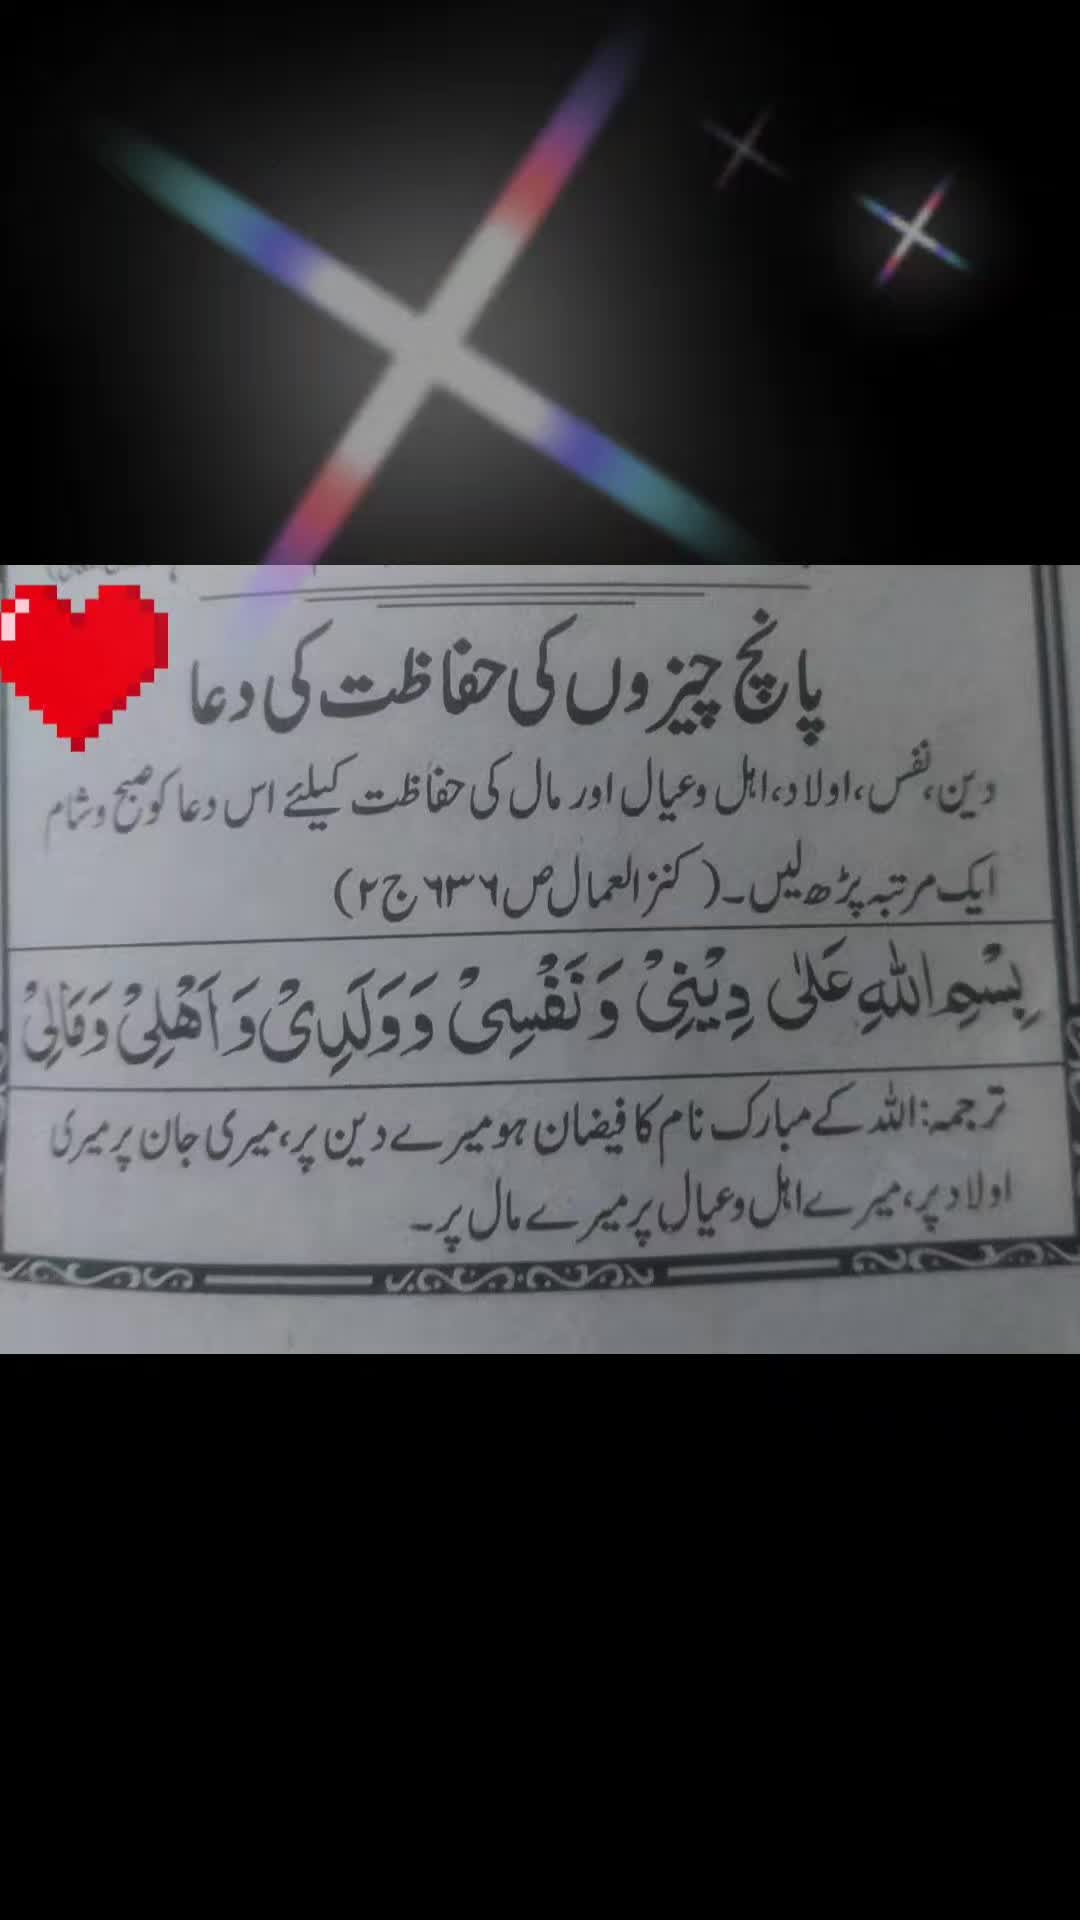 پانچ چیزوں کی حفاظت کی دعا
دین، نفس، اولاد، اہل وعیال اور مال کی حفاظت کیلئے اس دعا کو صبح و شام
ایک مرتبہ پڑھ لیں۔ (کنز العمال ص ۶۳۶ ج ۲)
بِسْمِ اللّٰهِ عَلٰی دِیْنِیْ وَ نَفْسِیْ وَ وَلَدِیْ وَ اَهْلِیْ وَ مَالِیْ
ترجمہ: اللہ کے مبارک نام کا فیضان ہو میرے دین پر، میری جان پر میری
اولاد پر، میرے اہل وعیال پر میرے مال پر۔